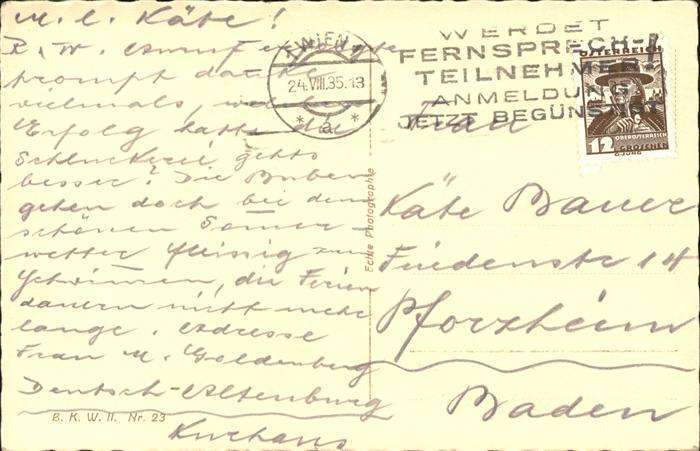 M. l. Käte!
R. W.
prompt dank
vielmals,
Erfolg hatte die
geht's
besser? Die Buben
gehen doch bei dem
schönen Somer-
wetter fleissig zum
Schwimen, die Ferien
dauern nicht mehr
lange. Adresse
Frau M. Goldenberg
Deutsch-Altenburg
Kurhaus
B. K. W. II. Nr. 23
Echte Photographie
WIEN
24.VIII.35.13
* a *
WERDET
FERNSPRECH-
TEILNEHMER
ANMELDUNG
JETZT BEGÜNSTIGT
ÖSTERREICH
OBERÖSTERREICH
12 GROSCHEN
Frau
Käte Bauer
Friedenstr
Pforzheim
Baden